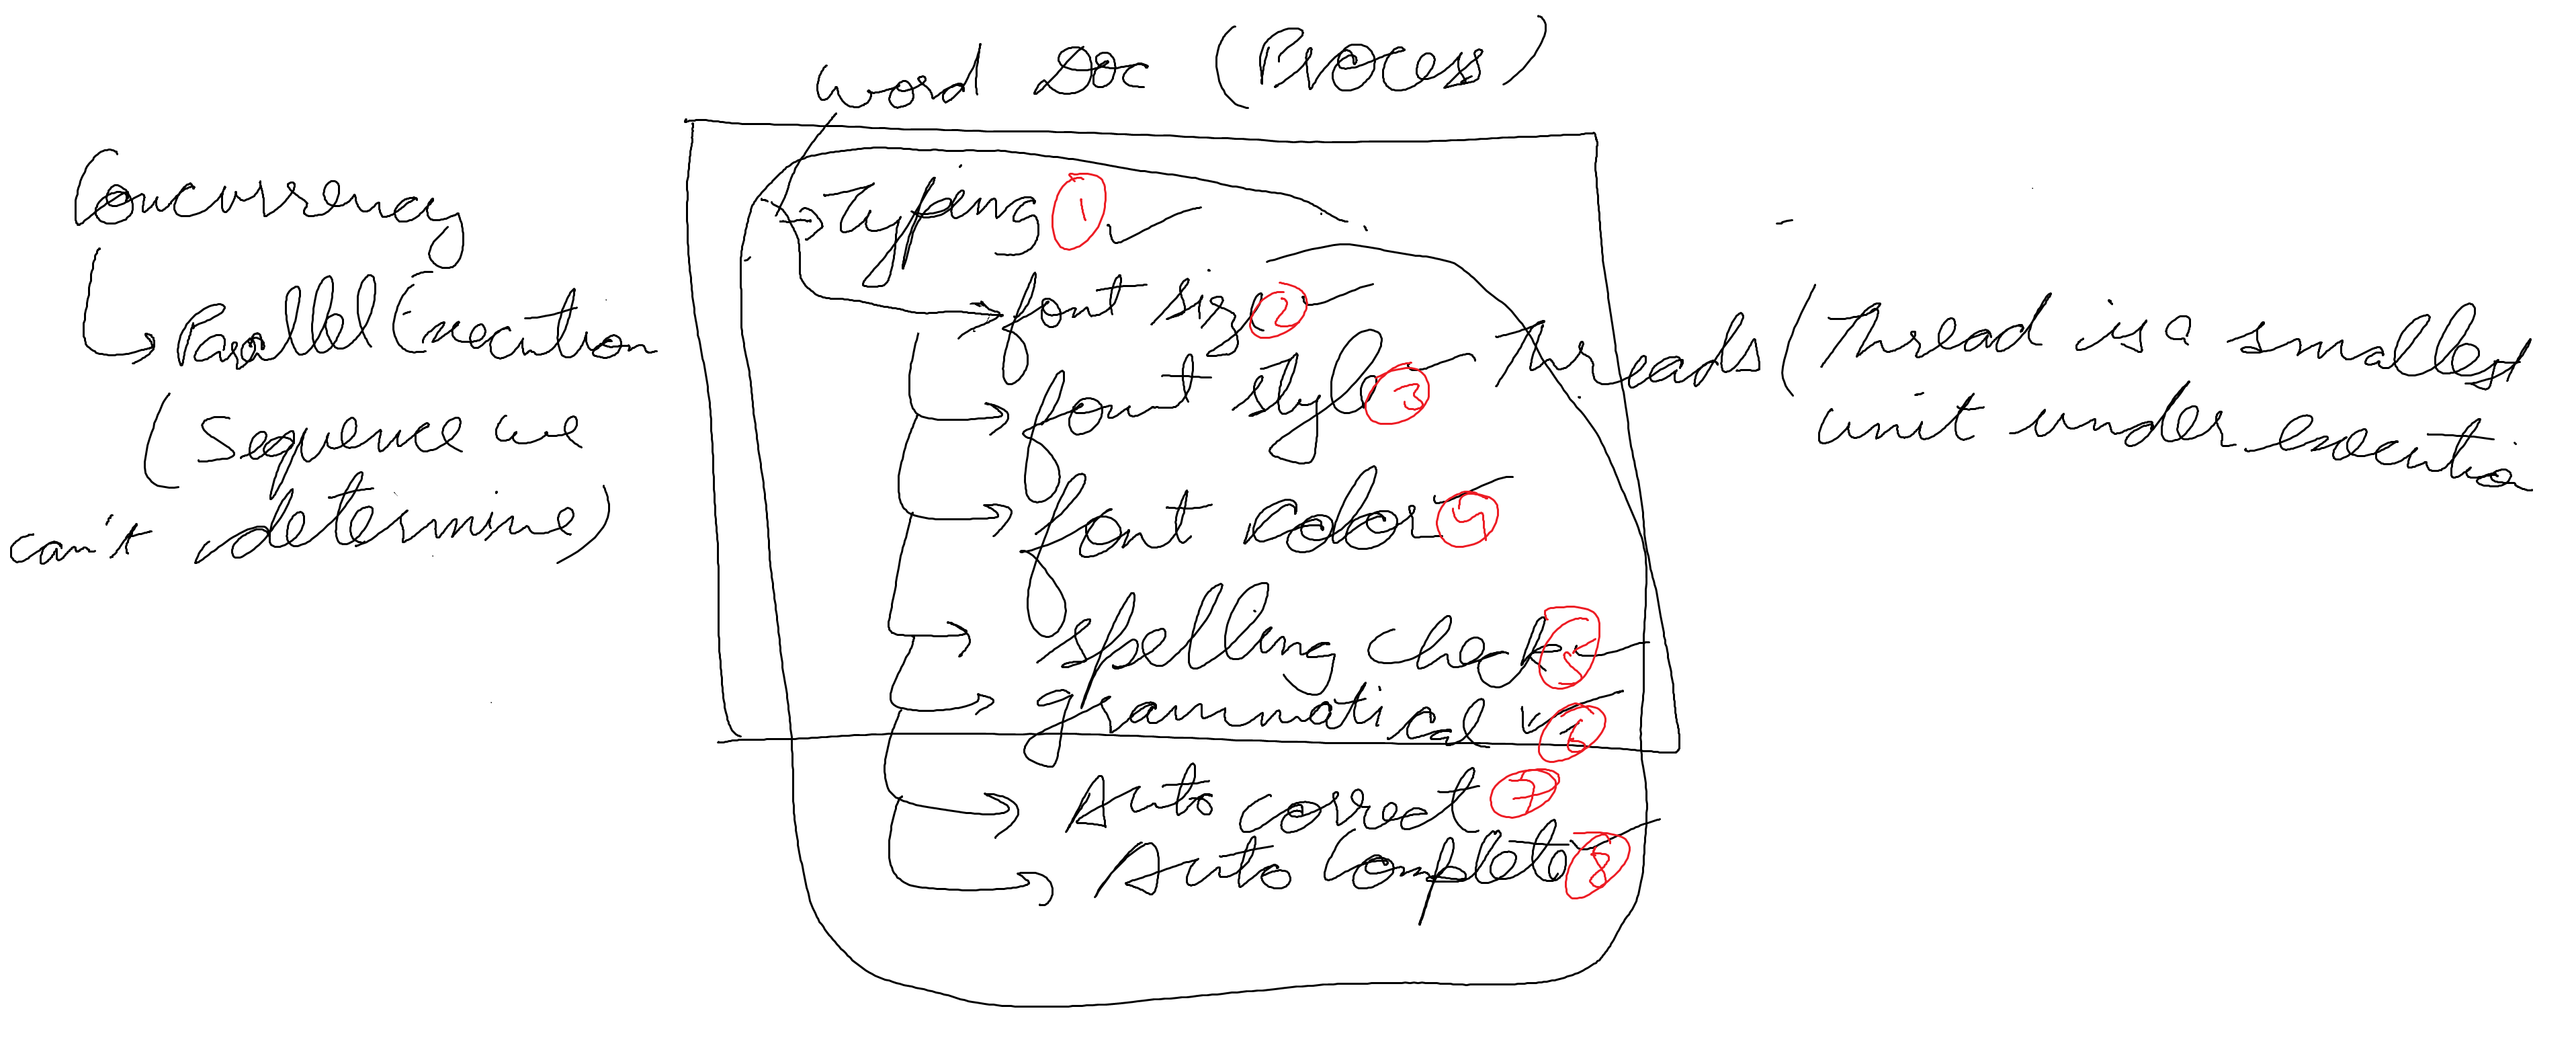 Word Doc (Process)
Concurrency
Parallel Execution
(Sequence we
can't determine)
Typing 1
font size 2
font style 3
font color 4
spelling check 5
grammatical 6
Auto correct 7
Auto Complete 8
Threads (Thread is a smallest
unit under executio